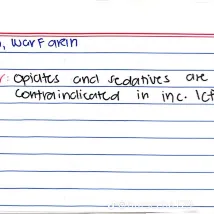 , warfarin
: opiates and sedatives are
contraindicated in inc. ICP